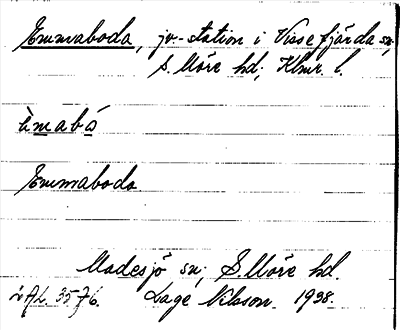 Emmaboda, jv-station i Vissefjärda sn,
S. Möre hd; Klmr l.
èmabó
Emmaboda.
Madesjö sn; S. Möre hd.
Dage Nilsson. 1938.